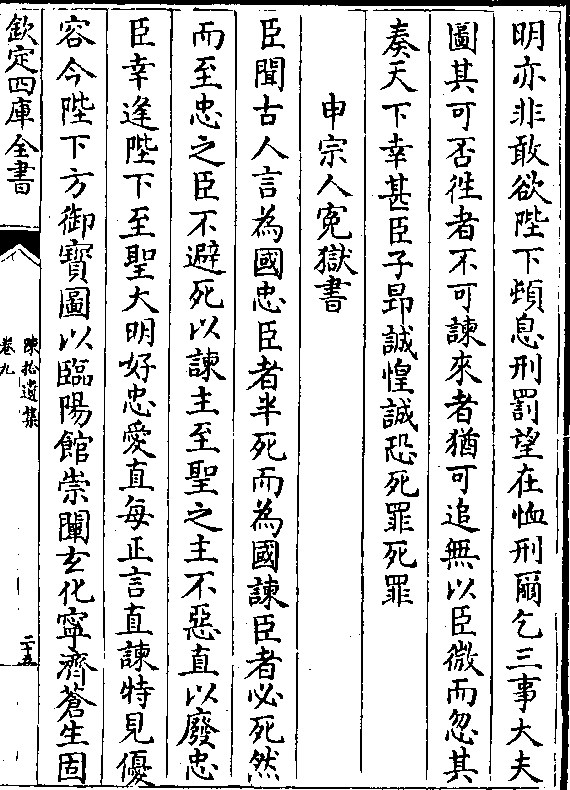 明亦非敢欲陛下頓息刑罰望在恤刑爾乞三事大夫
圖其可否徃者不可諫來者猶可追無以臣微而忽其
奏天下幸甚臣子昻誠惶誠恐死罪死罪
申宗人寃獄書
臣聞古人言為國忠臣者半死而為國諫臣者必死然
而至忠之臣不避死以諫主至聖之主不惡直以廢忠
臣幸逢陛下至聖大明好忠愛直每正言直諫特見優
容今陛下方御寳圖以臨陽館崇闡𤣥化寧濟蒼生固
欽定四庫全書
陳拾遺集
卷九
二十五